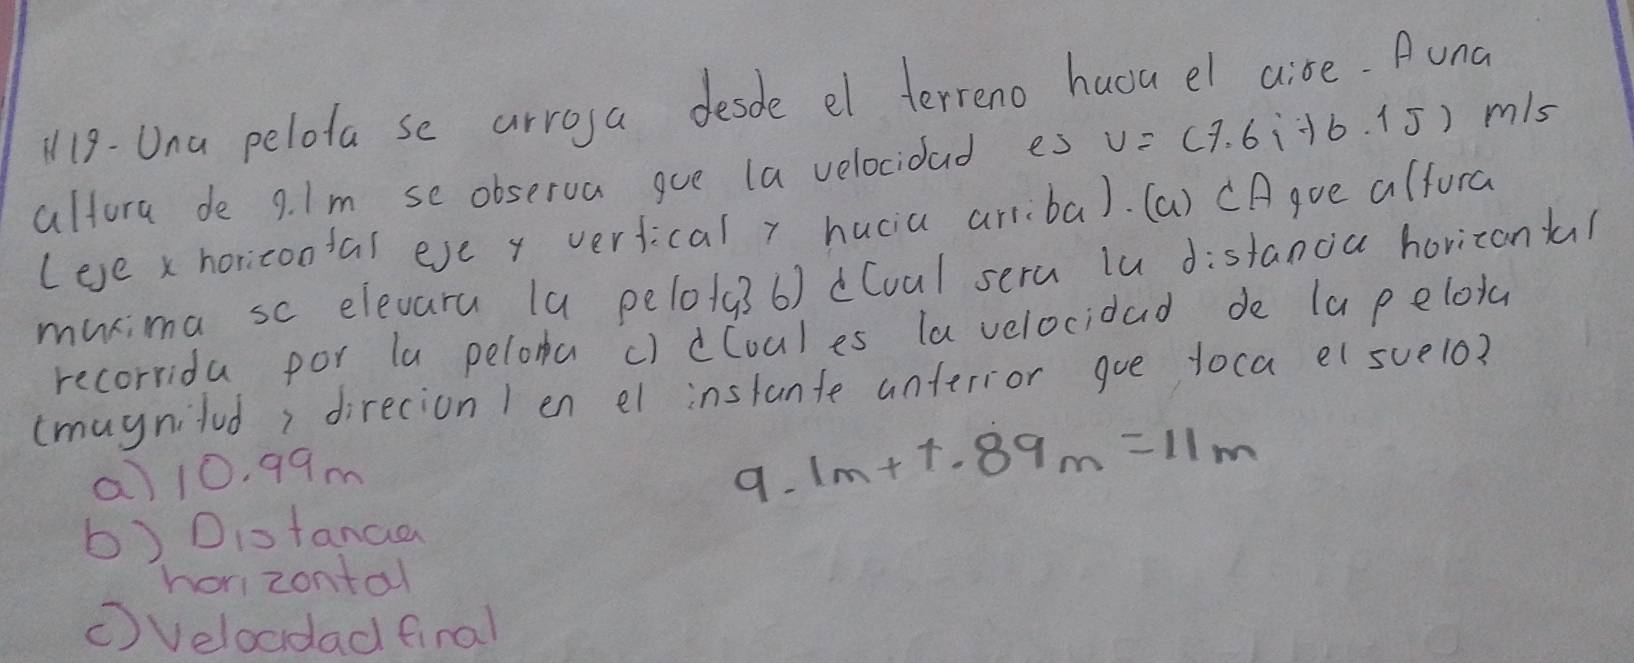 #19- Una pelota se arroja desde el terreno hacia el aire. A una
altura de 9.1m se observa que la velocidad es v= (7.6i+6.1J) m/s
(eje x horicontal eje y vertical y hacia arriba). (a) ¿A que altura
maxima se elevara la pelota? b) ¿Cual sera la distancia horicontal
recorrida por la pelota c) ¿Cual es la velocidad de la pelota
(magnitud y direcion) en el instante anterior que toca el suelo?
a) 10.99m
9.1m + 1.89m = 11m
b) Distancia
horizontal
c) Velocidad final